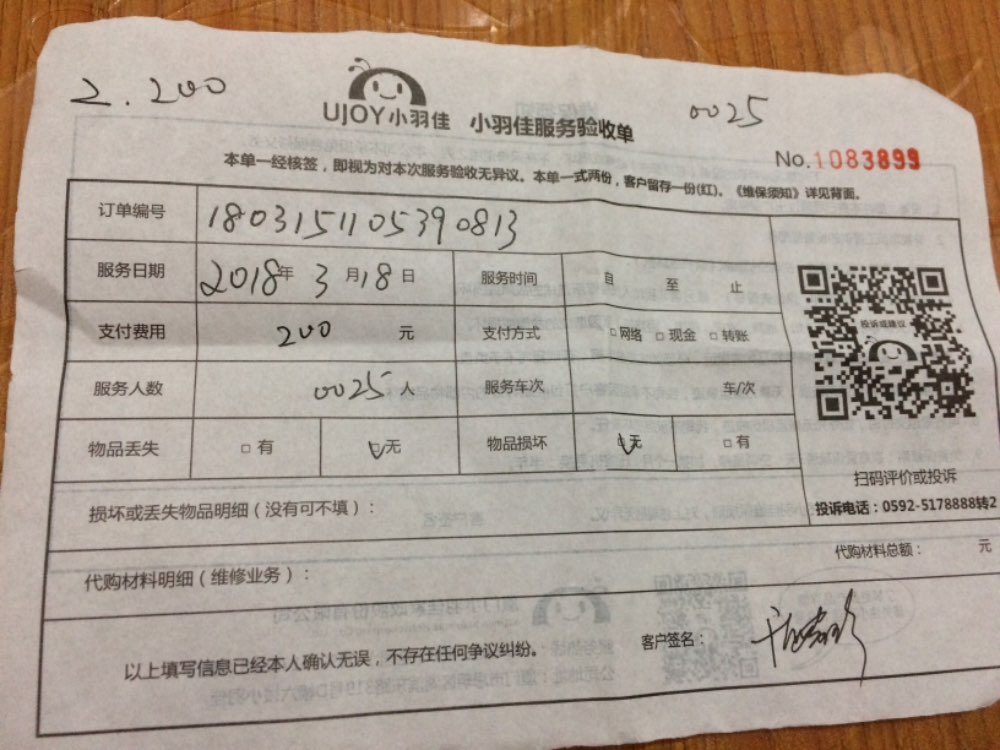 2.200
0025
UJOY小羽佳 小羽佳服务验收单
No.1083899
本单一经核签，即视为对本次服务验收无异议。本单一式两份，客户留存一份(红)。《维保须知》详见背面。
订单编号 1803151105390813
服务日期 2018年 3月18日 服务时间 自 至 止
支付费用 200 元 支付方式 □网络 □现金 □转账
投诉或建议
服务人数 0025人 服务车次 车/次
物品丢失 □有 无 物品损坏 无 □有
扫码评价或投诉
投诉电话：0592-5178888转2
损坏或丢失物品明细（没有可不填）：
代购材料总额： 元
代购材料明细（维修业务）：
以上填写信息已经本人确认无误，不存在任何争议纠纷。 客户签名：